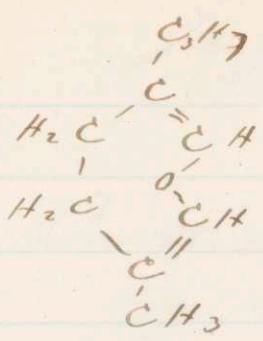 C₃H₇
C
H₂ C
C H
O
H₂ C
CH
C
CH₃